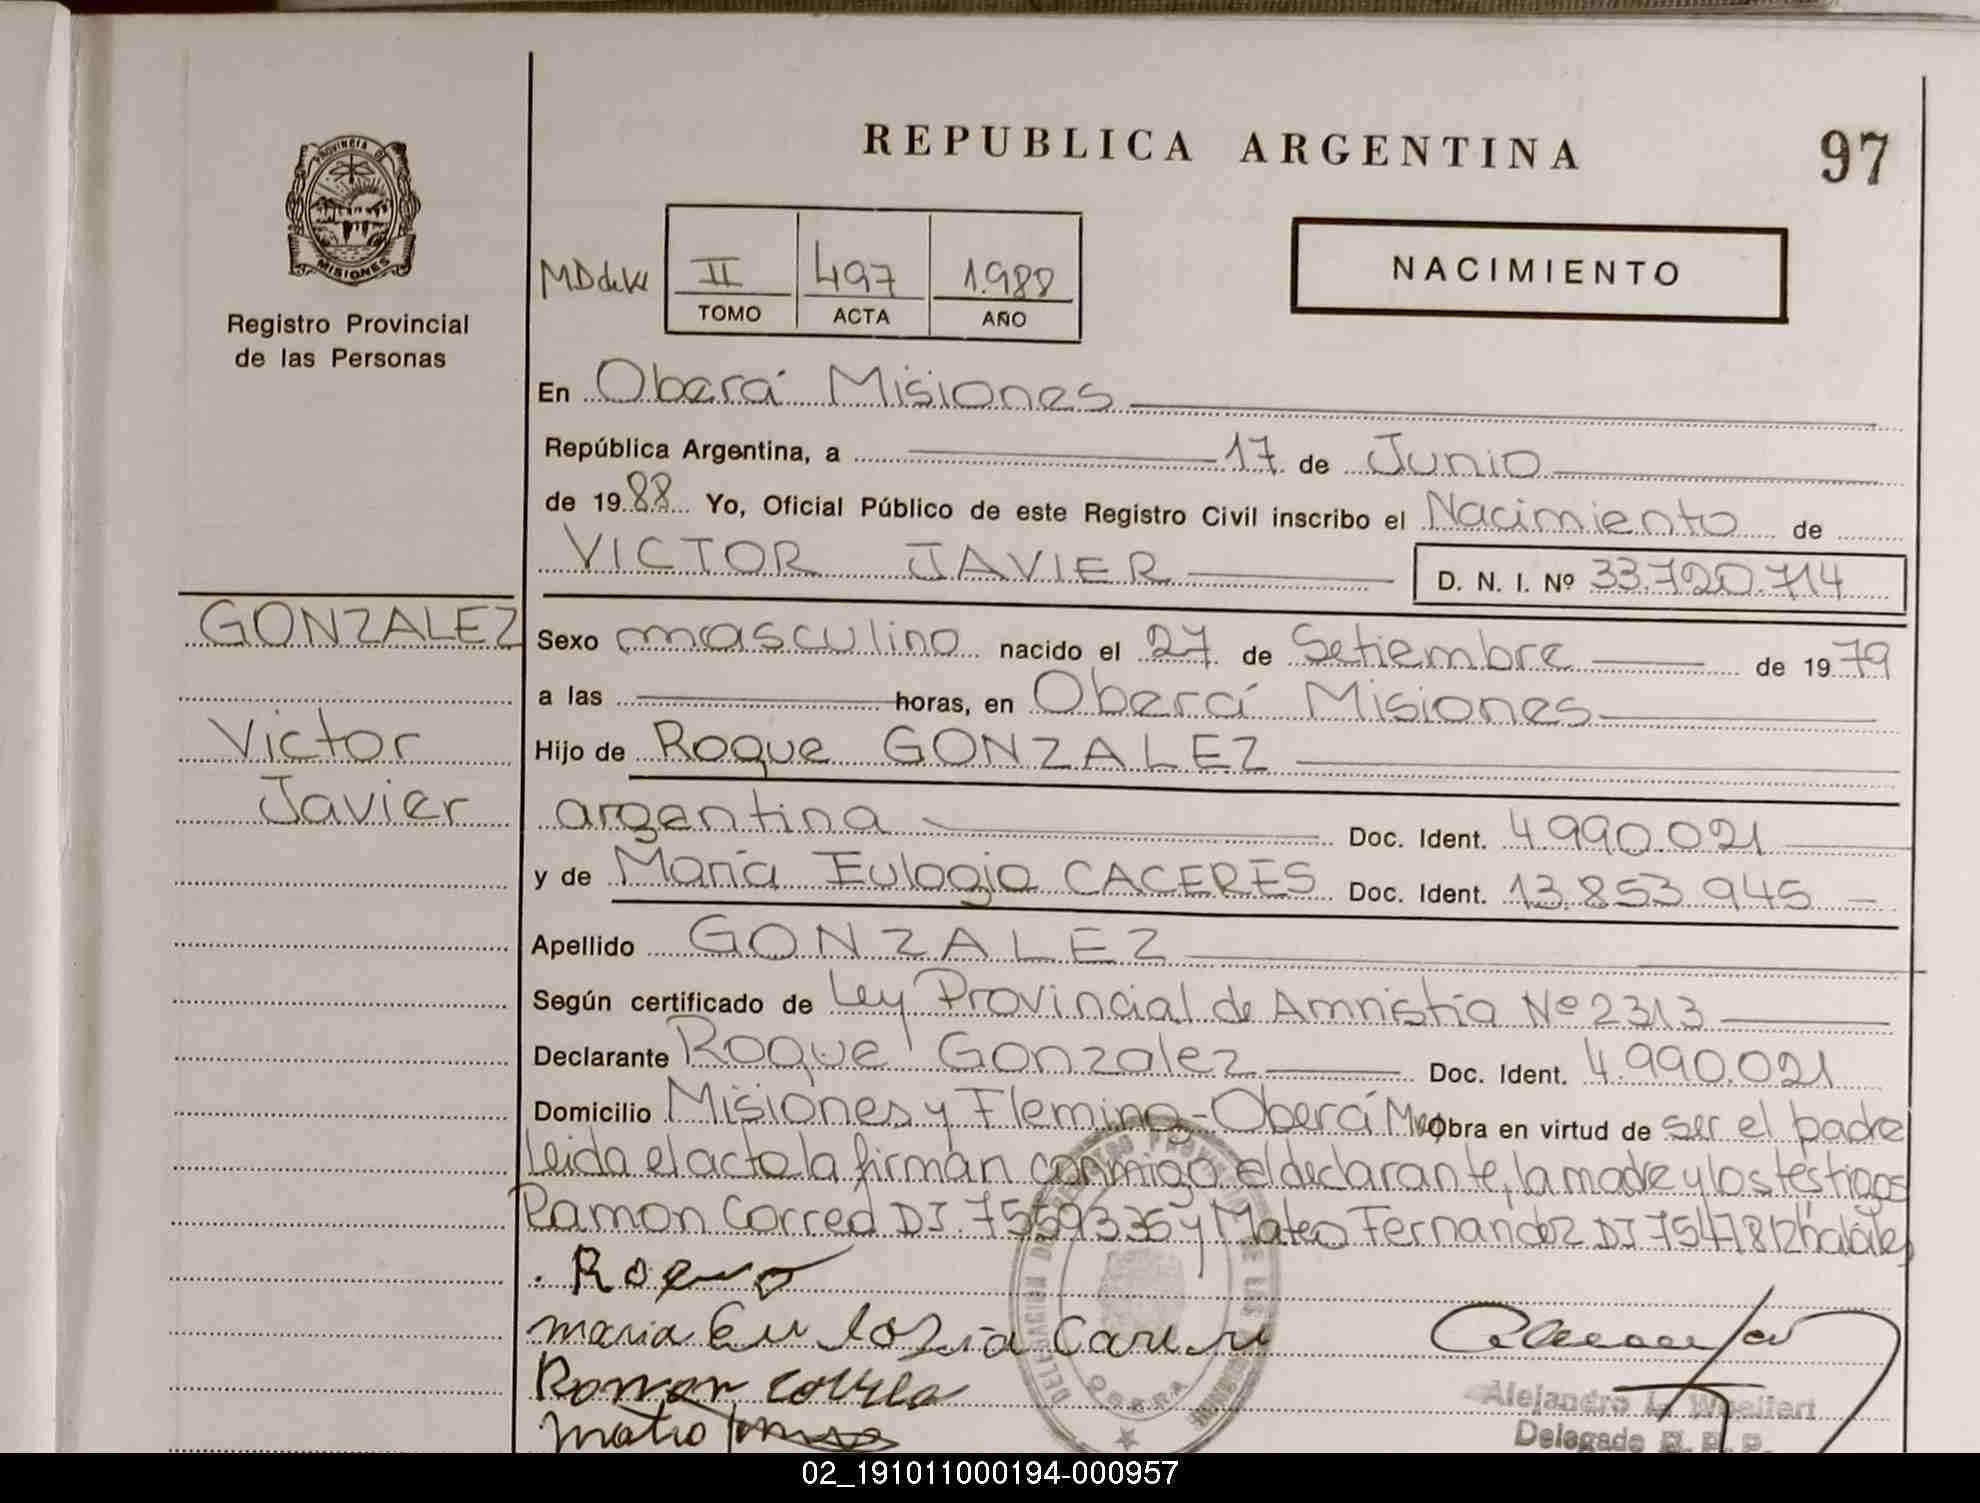 REPUBLICA ARGENTINA
97
PROVINCIA DE
MISIONES
Registro Provincial
de las Personas
II 497 1.988
TOMO ACTA AÑO
NACIMIENTO
En Oberá Misiones
República Argentina, a 17 de Junio
de 1988 Yo, Oficial Público de este Registro Civil inscribo el Nacimiento de
VICTOR JAVIER D. N. I. Nº 33.720.714
GONZALEZ
Victor
Javier
Sexo masculino nacido el 27 de Setiembre de 1979
a las horas, en Oberá Misiones
Hijo de Roque GONZALEZ
argentina Doc. Ident. 4.990.021
y de María Eulogia CACERES Doc. Ident. 13.853.945
Apellido GONZALEZ
Según certificado de Ley Provincial de Amnistía Nº 2313
Declarante Roque Gonzalez Doc. Ident. 4.990.021
Domicilio Misiones y Fleming - Oberá Obra en virtud de ser el padre
Leida el acta la firman conmigo el declarante, la madre y los testigos
Ramon Correa DI. 7559335 y Mateo Fernandez DI 7547812
Roque
maria Eulogia
Ramon Correa
Mateo
DELEGACION DEL REGISTRO PROVINCIAL DE LAS PERSONAS
OBERA
Alejandro
Delegado R. P. P.
02_191011000194-000957